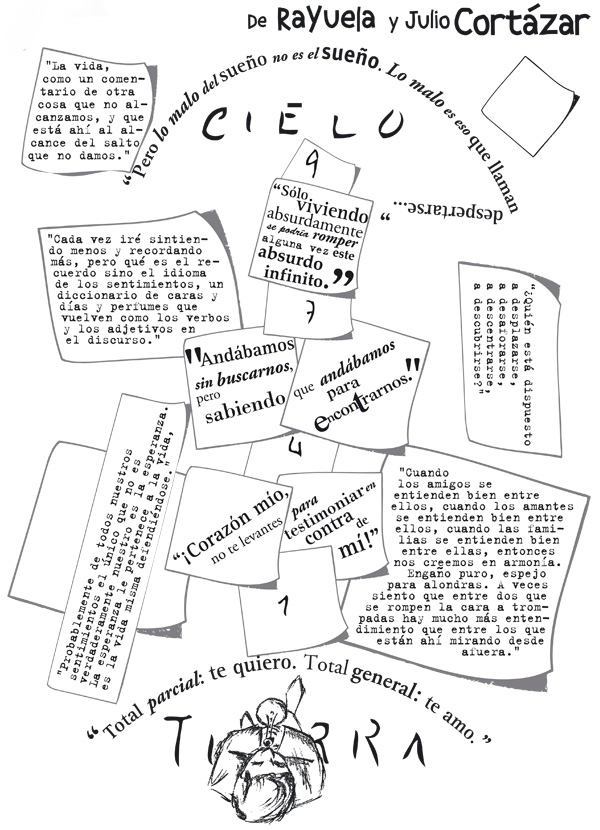 De Rayuela y Julio Cortázar
"La vida,
como un comen-
tario de otra
cosa que no al-
canzamos, y que
está ahí al al-
cance del salto
que no damos."
"Pero lo malo del sueño no es el sueño. Lo malo es eso que llaman
despertarse... "
CIELO
9
"Sólo
viviendo
absurdamente
se podría romper
alguna vez este
absurdo
infinito."
7
"Cada vez iré sintien-
do menos y recordando
más, pero qué es el re-
cuerdo sino el idioma
de los sentimientos, un
diccionario de caras y
días y perfumes que
vuelven como los verbos
y los adjetivos en
el discurso."
"¿Quién está dispuesto
a desplazarse,
a desaforarse,
a descentrarse,
a descubrirse?"
"Andábamos
sin buscarnos,
pero
sabiendo
que andábamos
para
encontrarnos."
4
"Probablemente de todos nuestros
sentimientos el único que no es
verdaderamente nuestro es la esperanza.
La esperanza le pertenece a la vida,
es la vida misma defendiéndose."
"¡Corazón mío,
no te levantes
para
testimoniar en
contra de
mí!"
"Cuando
los amigos se
entienden bien entre
ellos, cuando los amantes
se entienden bien entre
ellos, cuando las fami-
lias se entienden bien
entre ellas, entonces
nos creemos en armonía.
Engaño puro, espejo
para alondras. A veces
siento que entre dos que
se rompen la cara a trom-
padas hay mucho más enten-
dimiento que entre los que
están ahí mirando desde
afuera."
1
"Total parcial: te quiero. Total general: te amo."
TIERRA